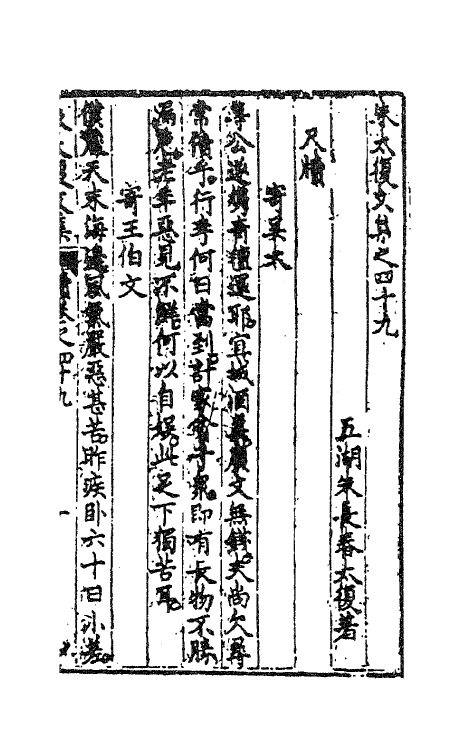 朱太復文集之四十九
五湖朱長春太復著
尺牘
寄吳太
公遂獨奇糧還耶宜城酒美廣文無錢夫尚欠尋
常債乎行李何日當到計家食子眾即有長物不勝
漏卮老年惡見不鮮何以自娛此足下獨苦耳
寄王伯文
僕竄天末海邊風氣嚴惡甚苦昨疾臥六十日小差
文集 卷之四十九 一